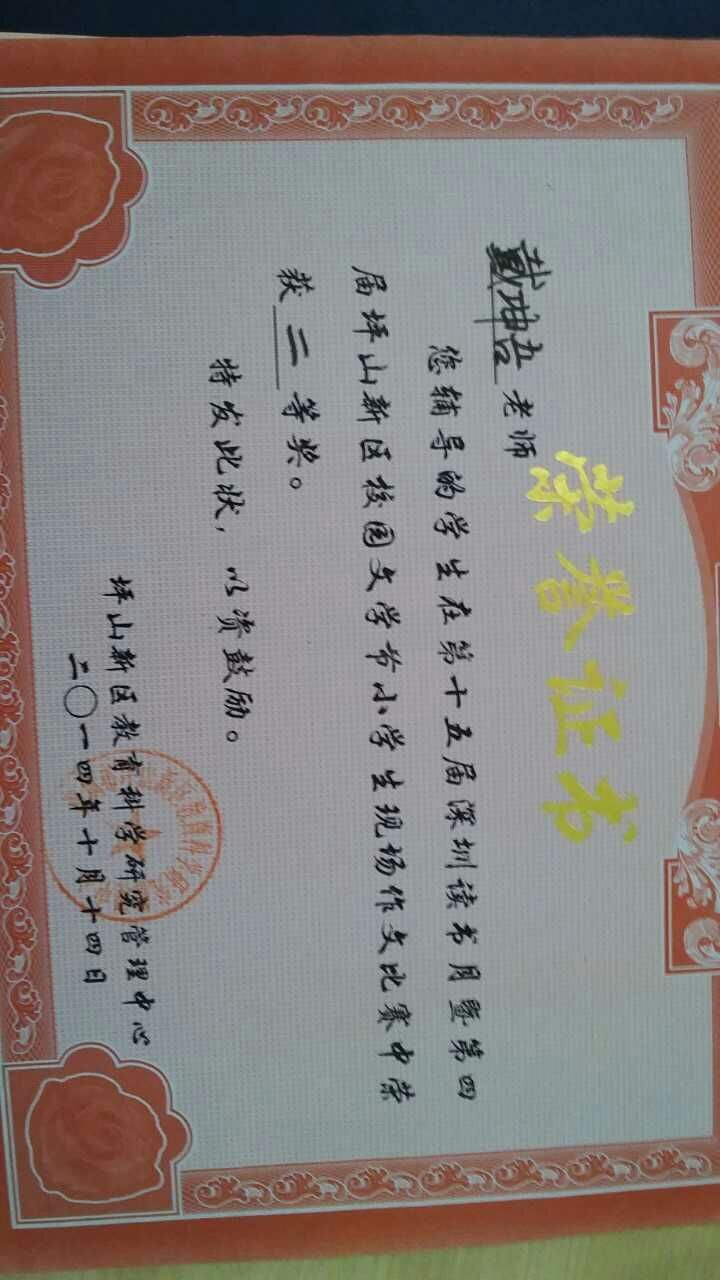 荣誉证书
戴坤吾老师
您辅导的学生在第十五届深圳读书月暨第四
届坪山新区校园文学节小学生现场作文比赛中荣
获二等奖。
特发此状，以资鼓励。
坪山新区教育科学研究管理中心
二〇一四年十月十四日